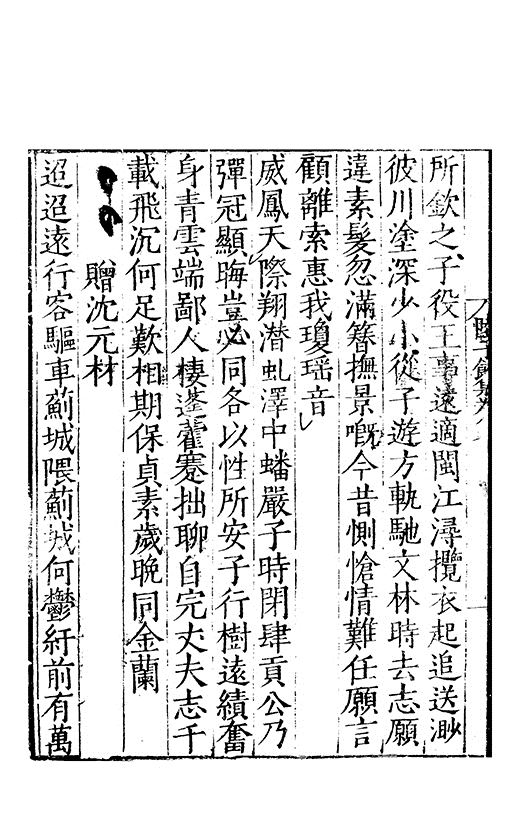 所欽之子役王事遠適閩江潯攬衣起追送渺
彼川塗深少小從子遊方軌馳文林時去志願
違素髮忽滿簪撫景嘅今昔惻愴情難任願言
顧離索惠我瓊瑶音
威鳳天際翔潜虬澤中蟠嚴子時閉肆貢公乃
彈冠顯晦豈必同各以性所安子行樹遠績奮
身青雲端鄙人棲蓬藿蹇拙聊自完丈夫志千
載飛沉何足歎相期保貞素歲晚同金蘭
贈沈元材
迢迢遠行客驅車薊城隈薊城何鬱紆前有萬